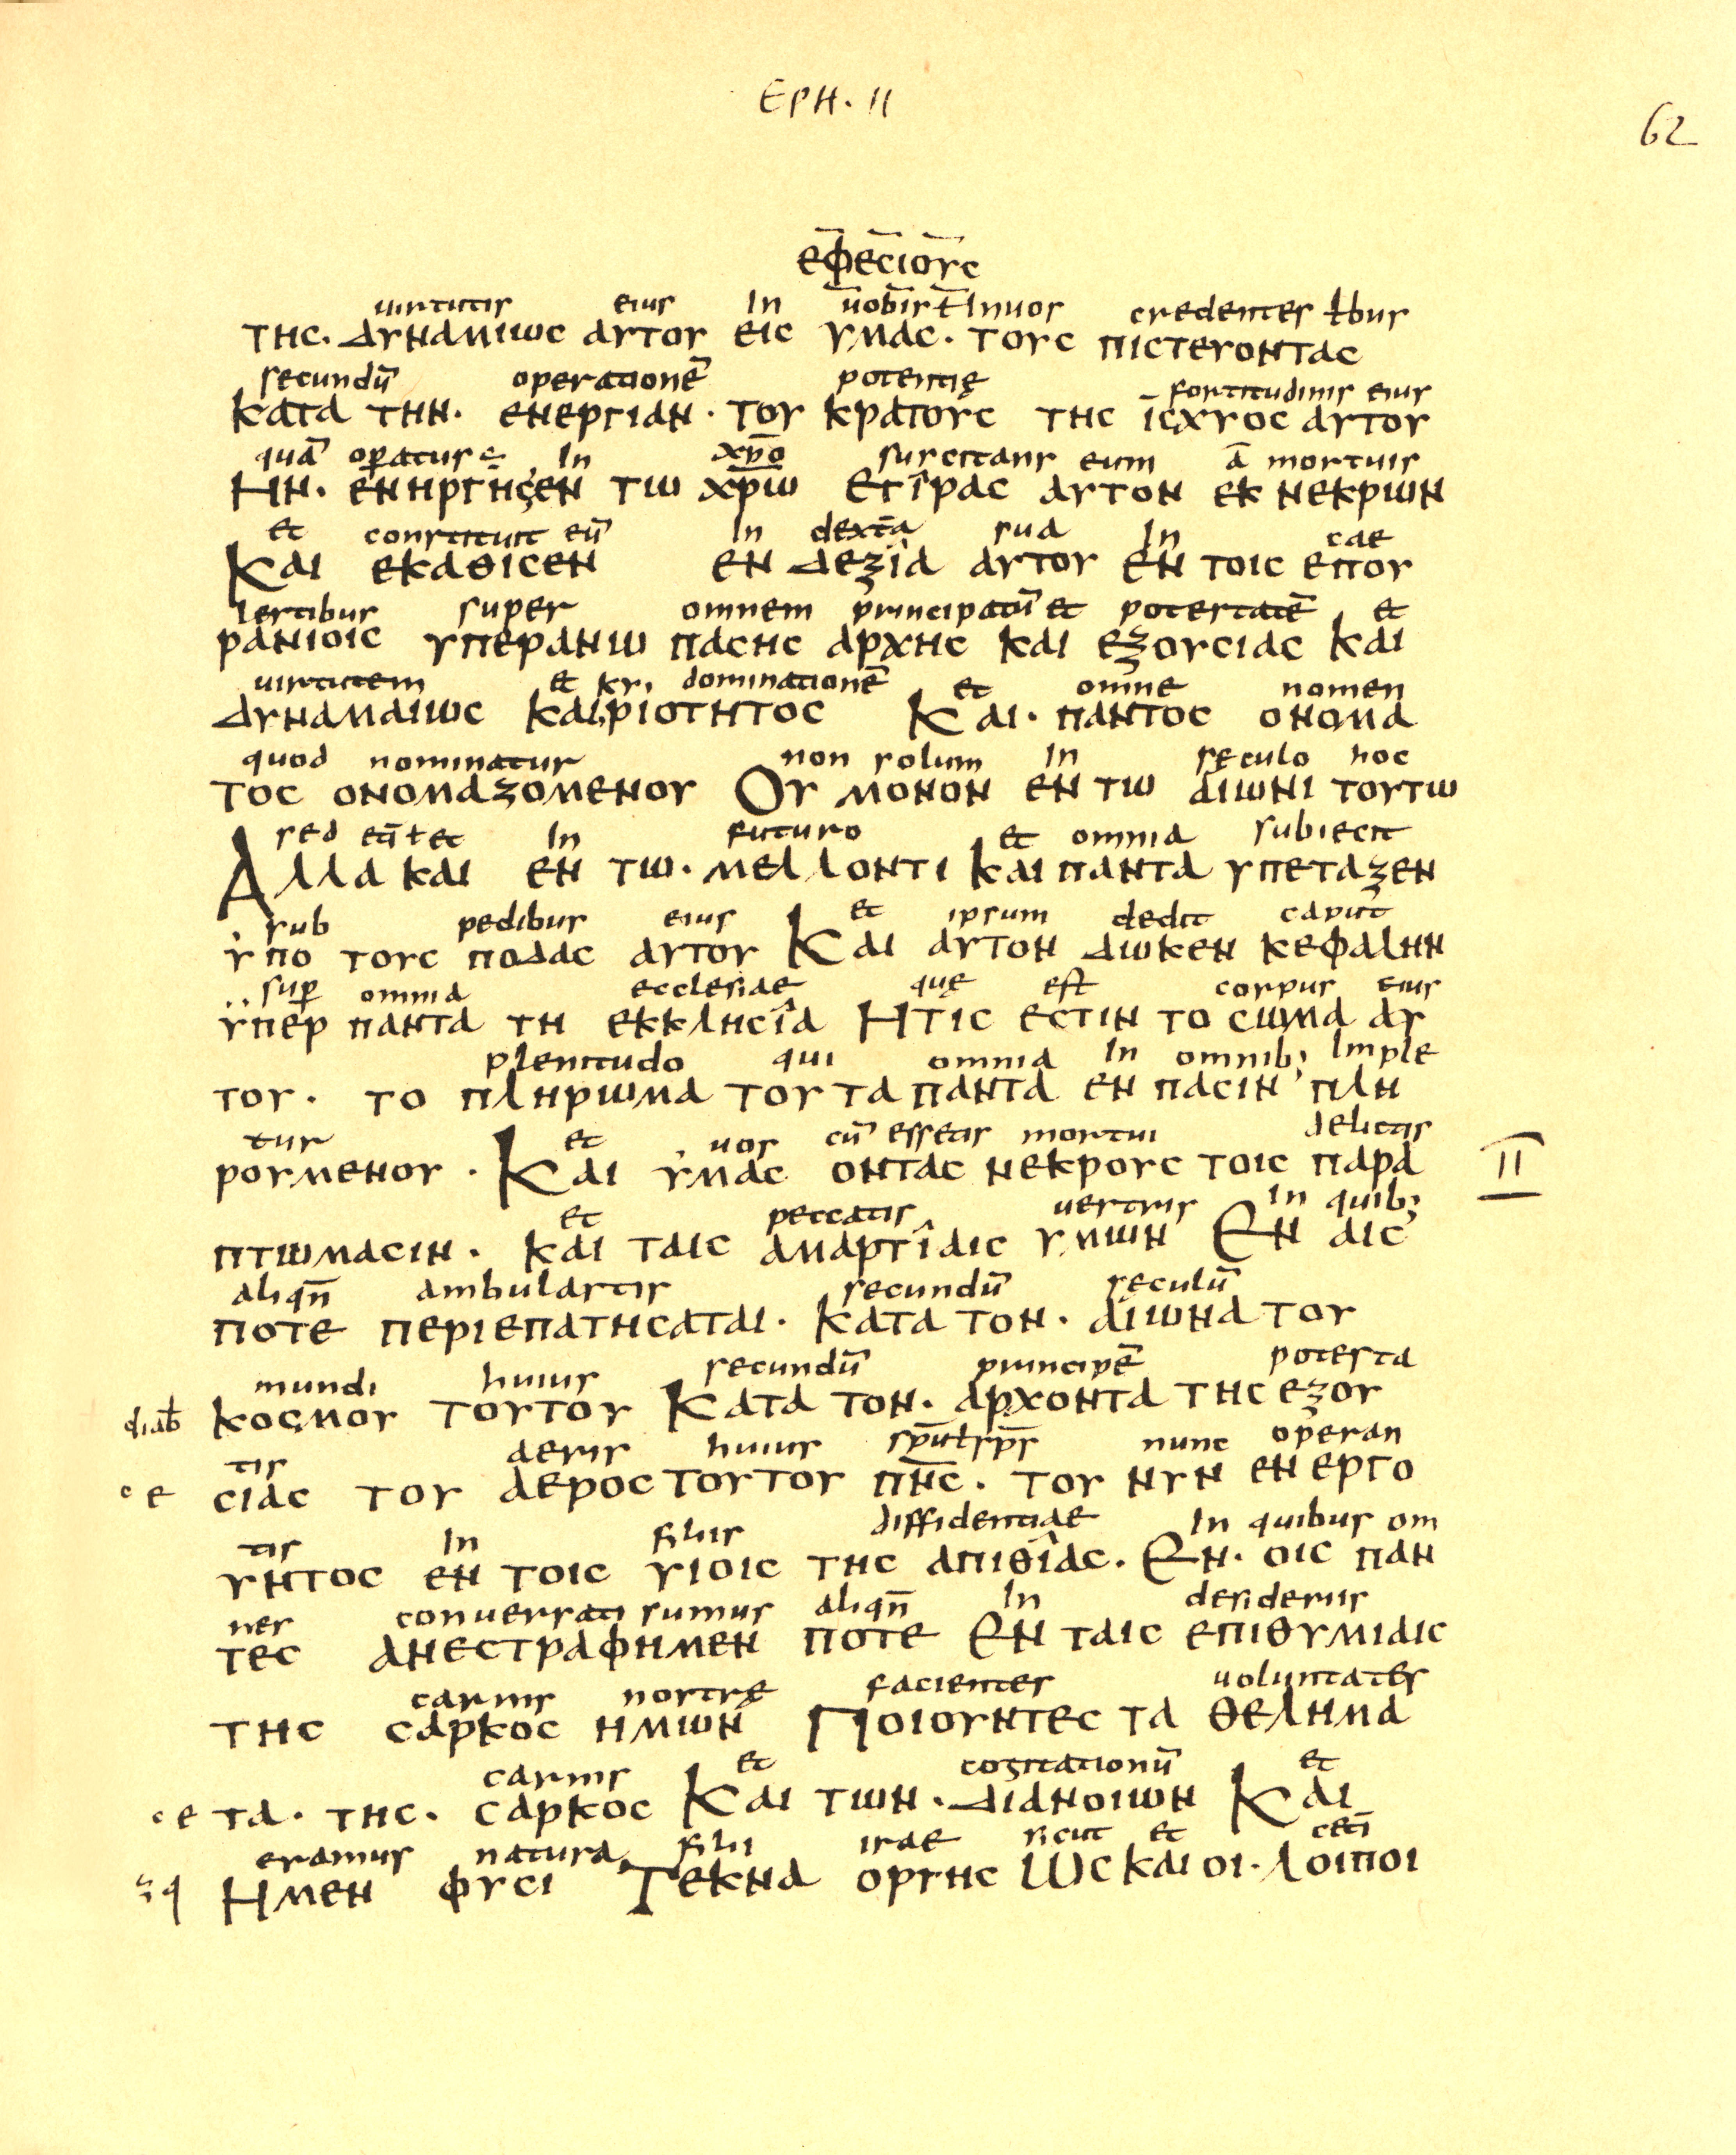 EPH. II
62
ΕΦΕΣΙΟΥΣ
uirtutis eius In uobis ł Inuos credentes łbus
ΤΗΣ· ΔΥΝΑΜΙΩΣ ΑΥΤΟΥ ΕΙΣ ΥΜΑΣ· ΤΟΥΣ ΠΙΣΤΕΥΟΝΤΑΣ
secundū operationē potentię fortitudinis eius
ΚΑΤΑ ΤΗΝ· ΕΝΕΡΓΙΑΝ· ΤΟΥ ΚΡΑΤΟΥΣ ΤΗΣ ΙΣΧΥΟΣ ΑΥΤΟΥ
quā opatus ē In xpo suscitans eum ā mortuis
ΗΝ· ΕΝΗΡΓΗΣΕΝ ΤΩ ΧΡΩ ΕΓΙΡΑΣ ΑΥΤΟΝ ΕΚ ΝΕΚΡΩΝ
et constituit eū In dextā sua In cae
ΚΑΙ ΕΚΑΘΙΣΕΝ ΕΝ ΔΕΞΙΑ ΑΥΤΟΥ ΕΝ ΤΟΙΣ ΕΠΟΥ
lestibus super omnem principatū et potestatē et
ΡΑΝΙΟΙΣ ΥΠΕΡΑΝΩ ΠΑΣΗΣ ΑΡΧΗΣ ΚΑΙ ΕΞΟΥΣΙΑΣ ΚΑΙ
uirtutem et κυ, dominationē et omne nomen
ΔΥΝΑΜΑΙΩΣ ΚΑΙ,ΡΙΟΤΗΤΟΣ ΚΑΙ· ΠΑΝΤΟΣ ΟΝΟΜΑ
quod nominatur non solum In sęculo hoc
ΤΟΣ ΟΝΟΜΑΖΟΜΕΝΟΥ ΟΥ ΜΟΝΟΝ ΕΝ ΤΩ ΑΙΩΝΙ ΤΟΥΤΩ
sed etī ł et In futuro et omnia subiecit
ΑΛΛΑ ΚΑΙ ΕΝ ΤΩ· ΜΕΛΛΟΝΤΙ ΚΑΙ ΠΑΝΤΑ ΥΠΕΤΑΞΕΝ
sub pedibus eius et ipsum dedit caput
ΥΠΟ ΤΟΥΣ ΠΟΔΑΣ ΑΥΤΟΥ ΚΑΙ ΑΥΤΟΝ ΔΩΚΕΝ ΚΕΦΑΛΗΝ
sup omnia ecclesiae quę est corpus eius
ΫΠΕΡ ΠΑΝΤΑ ΤΗ ΕΚΚΛΗΣΙΑ ΗΤΙΣ ΕΣΤΙΝ ΤΟ ΣΩΜΑ ΑΥ
plenitudo qui omnia In omnib; Imple
ΤΟΥ· ΤΟ ΠΛΗΡΩΜΑ ΤΟΥ ΤΑ ΠΑΝΤΑ ΕΝ ΠΑΣΙΝ ΠΛΗ
tur et uos cū essetis mortui delictis
ΡΟΥΜΕΝΟΥ· ΚΑΙ ΥΜΑΣ ΟΝΤΑΣ ΝΕΚΡΟΥΣ ΤΟΙΣ ΠΑΡΑ II
et peccatis uestris In quib;
ΠΤΩΜΑΣΙΝ· ΚΑΙ ΤΑΙΣ ΑΜΑΡΤΙΑΙΣ ΥΜΩΝ ΕΝ ΑΙΣ
aliqn̄ ambulastis secundū seculū
ΠΟΤΕ ΠΕΡΙΕΠΑΤΗΣΑΤΑΙ· ΚΑΤΑ ΤΟΝ· ΑΙΩΝΑ ΤΟΥ
mundi huius secundū principē potesta
diab̄ ΚΟΣΜΟΥ ΤΟΥΤΟΥ ΚΑΤΑ ΤΟΝ· ΑΡΧΟΝΤΑ ΤΗΣ ΕΞΟΥ
tis aeris huius sp̄u ł sp̄s nunc operan
c e ΣΙΑΣ ΤΟΥ ΑΕΡΟΣ ΤΟΥΤΟΥ ΠΝ̄Σ· ΤΟΥ ΝΥΝ ΕΝΕΡΓΟ
tis In filiis diffidentiae In quibus om
ΥΝΤΟΣ ΕΝ ΤΟΙΣ ΥΙΟΙΣ ΤΗΣ ΑΠΙΘΙΑΣ· ΕΝ· ΟΙΣ ΠΑΝ
nes conuersati sumus aliqn̄ In desideriis
ΤΕΣ ΑΝΕΣΤΡΑΦΗΜΕΝ ΠΟΤΕ ΕΝ ΤΑΙΣ ΕΠΙΘΥΜΙΑΙΣ
carnis nostrę facientes uoluntates
ΤΗΣ ΣΑΡΚΟΣ ΗΜΩΝ ΠΟΙΟΥΝΤΕΣ ΤΑ ΘΕΛΗΜΑ
carnis et cogitationū et
c e ΤΑ· ΤΗΣ· ΣΑΡΚΟΣ ΚΑΙ ΤΩΝ· ΔΙΑΝΟΙΩΝ ΚΑΙ
eramus natura filii irae sicut et cetī
ΗΜΕΝ ΦΥΣΙ ΤΕΚΝΑ ΟΡΓΗΣ ΩΣ ΚΑΙ ΟΙ· ΛΟΙΠΟΙ